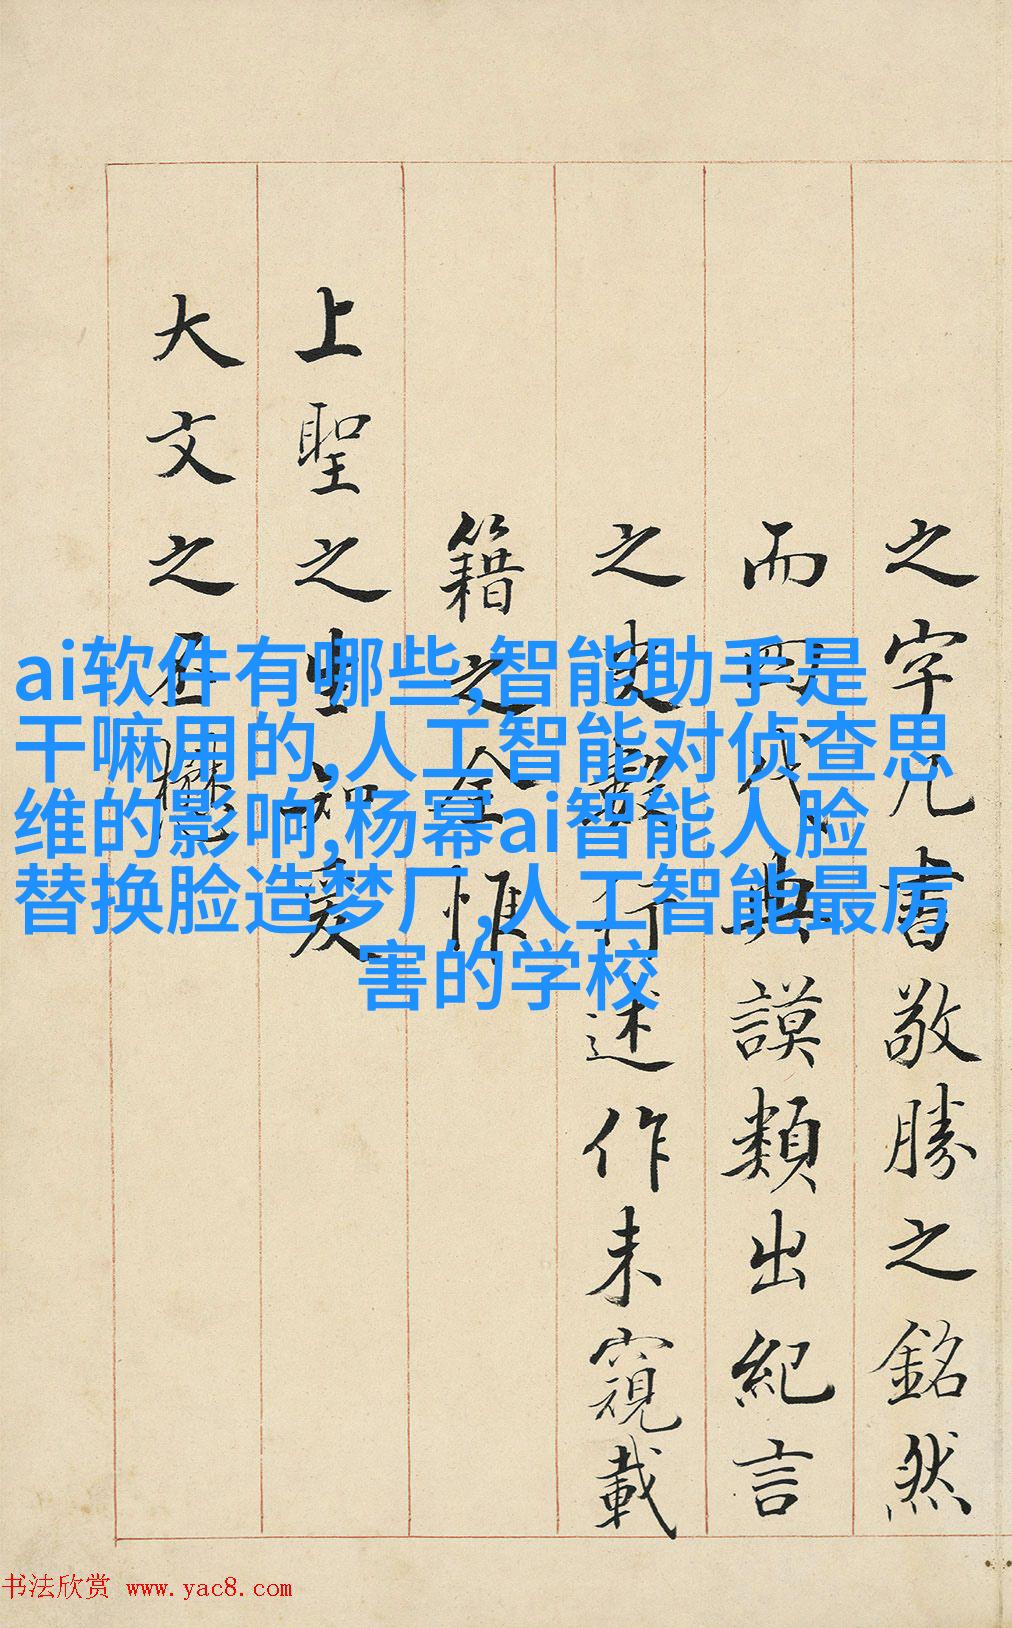 ai软件有哪些,智能助手是
干嘛用的,人工智能对侦查思
维的影响,杨幂ai智能人脸
替换脸造梦厂,人工智能最厉
害的学校
之字几書敬勝之銘然
而四代典謨類出紀言
之史數行述作未窺載
籍之全惟
上聖之生知爰
大文之
书法欣赏 www.yac8.com